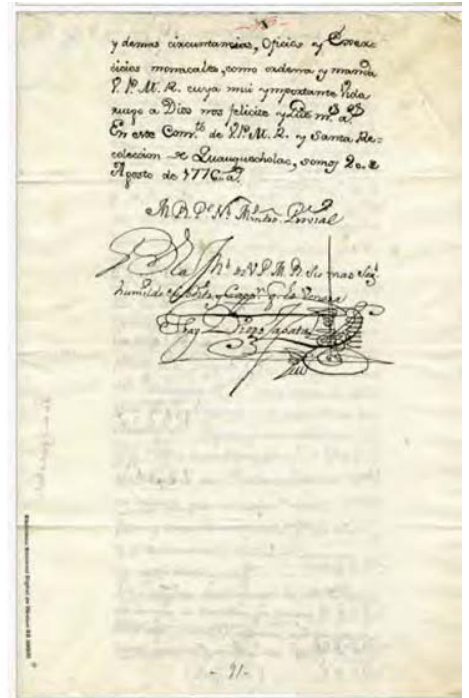 y demas circuntancias, Oficios y Exer-
cicios monacales, como ordena y manda
V. P. M. R. cuya mui ymportante Vida
ruego a Dios nos felicite y Gue m.s a.s
En este Conv.to de V. P. M. R. y Santa Re-
coleccion de Quauquecholac, somos 20. de
Agosto de 1776. a.s
M. R. P.e N.ro M.ro Prov̄cial
B. La M.o de V. P. M. R. su mas
humilde Subdito, y Capp.n q. le Venera
Fray Diego Zapata
- 91 -